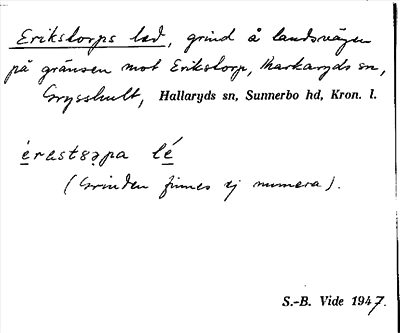 Erikstorps led, grind å landsvägen
på gränsen mot Erikstorp, Markaryds sn,
Grysshult, Hallaryds sn, Sunnerbo hd, Kron. l.
(Grinden finnes ej numera).
S.-B. Vide 1947.